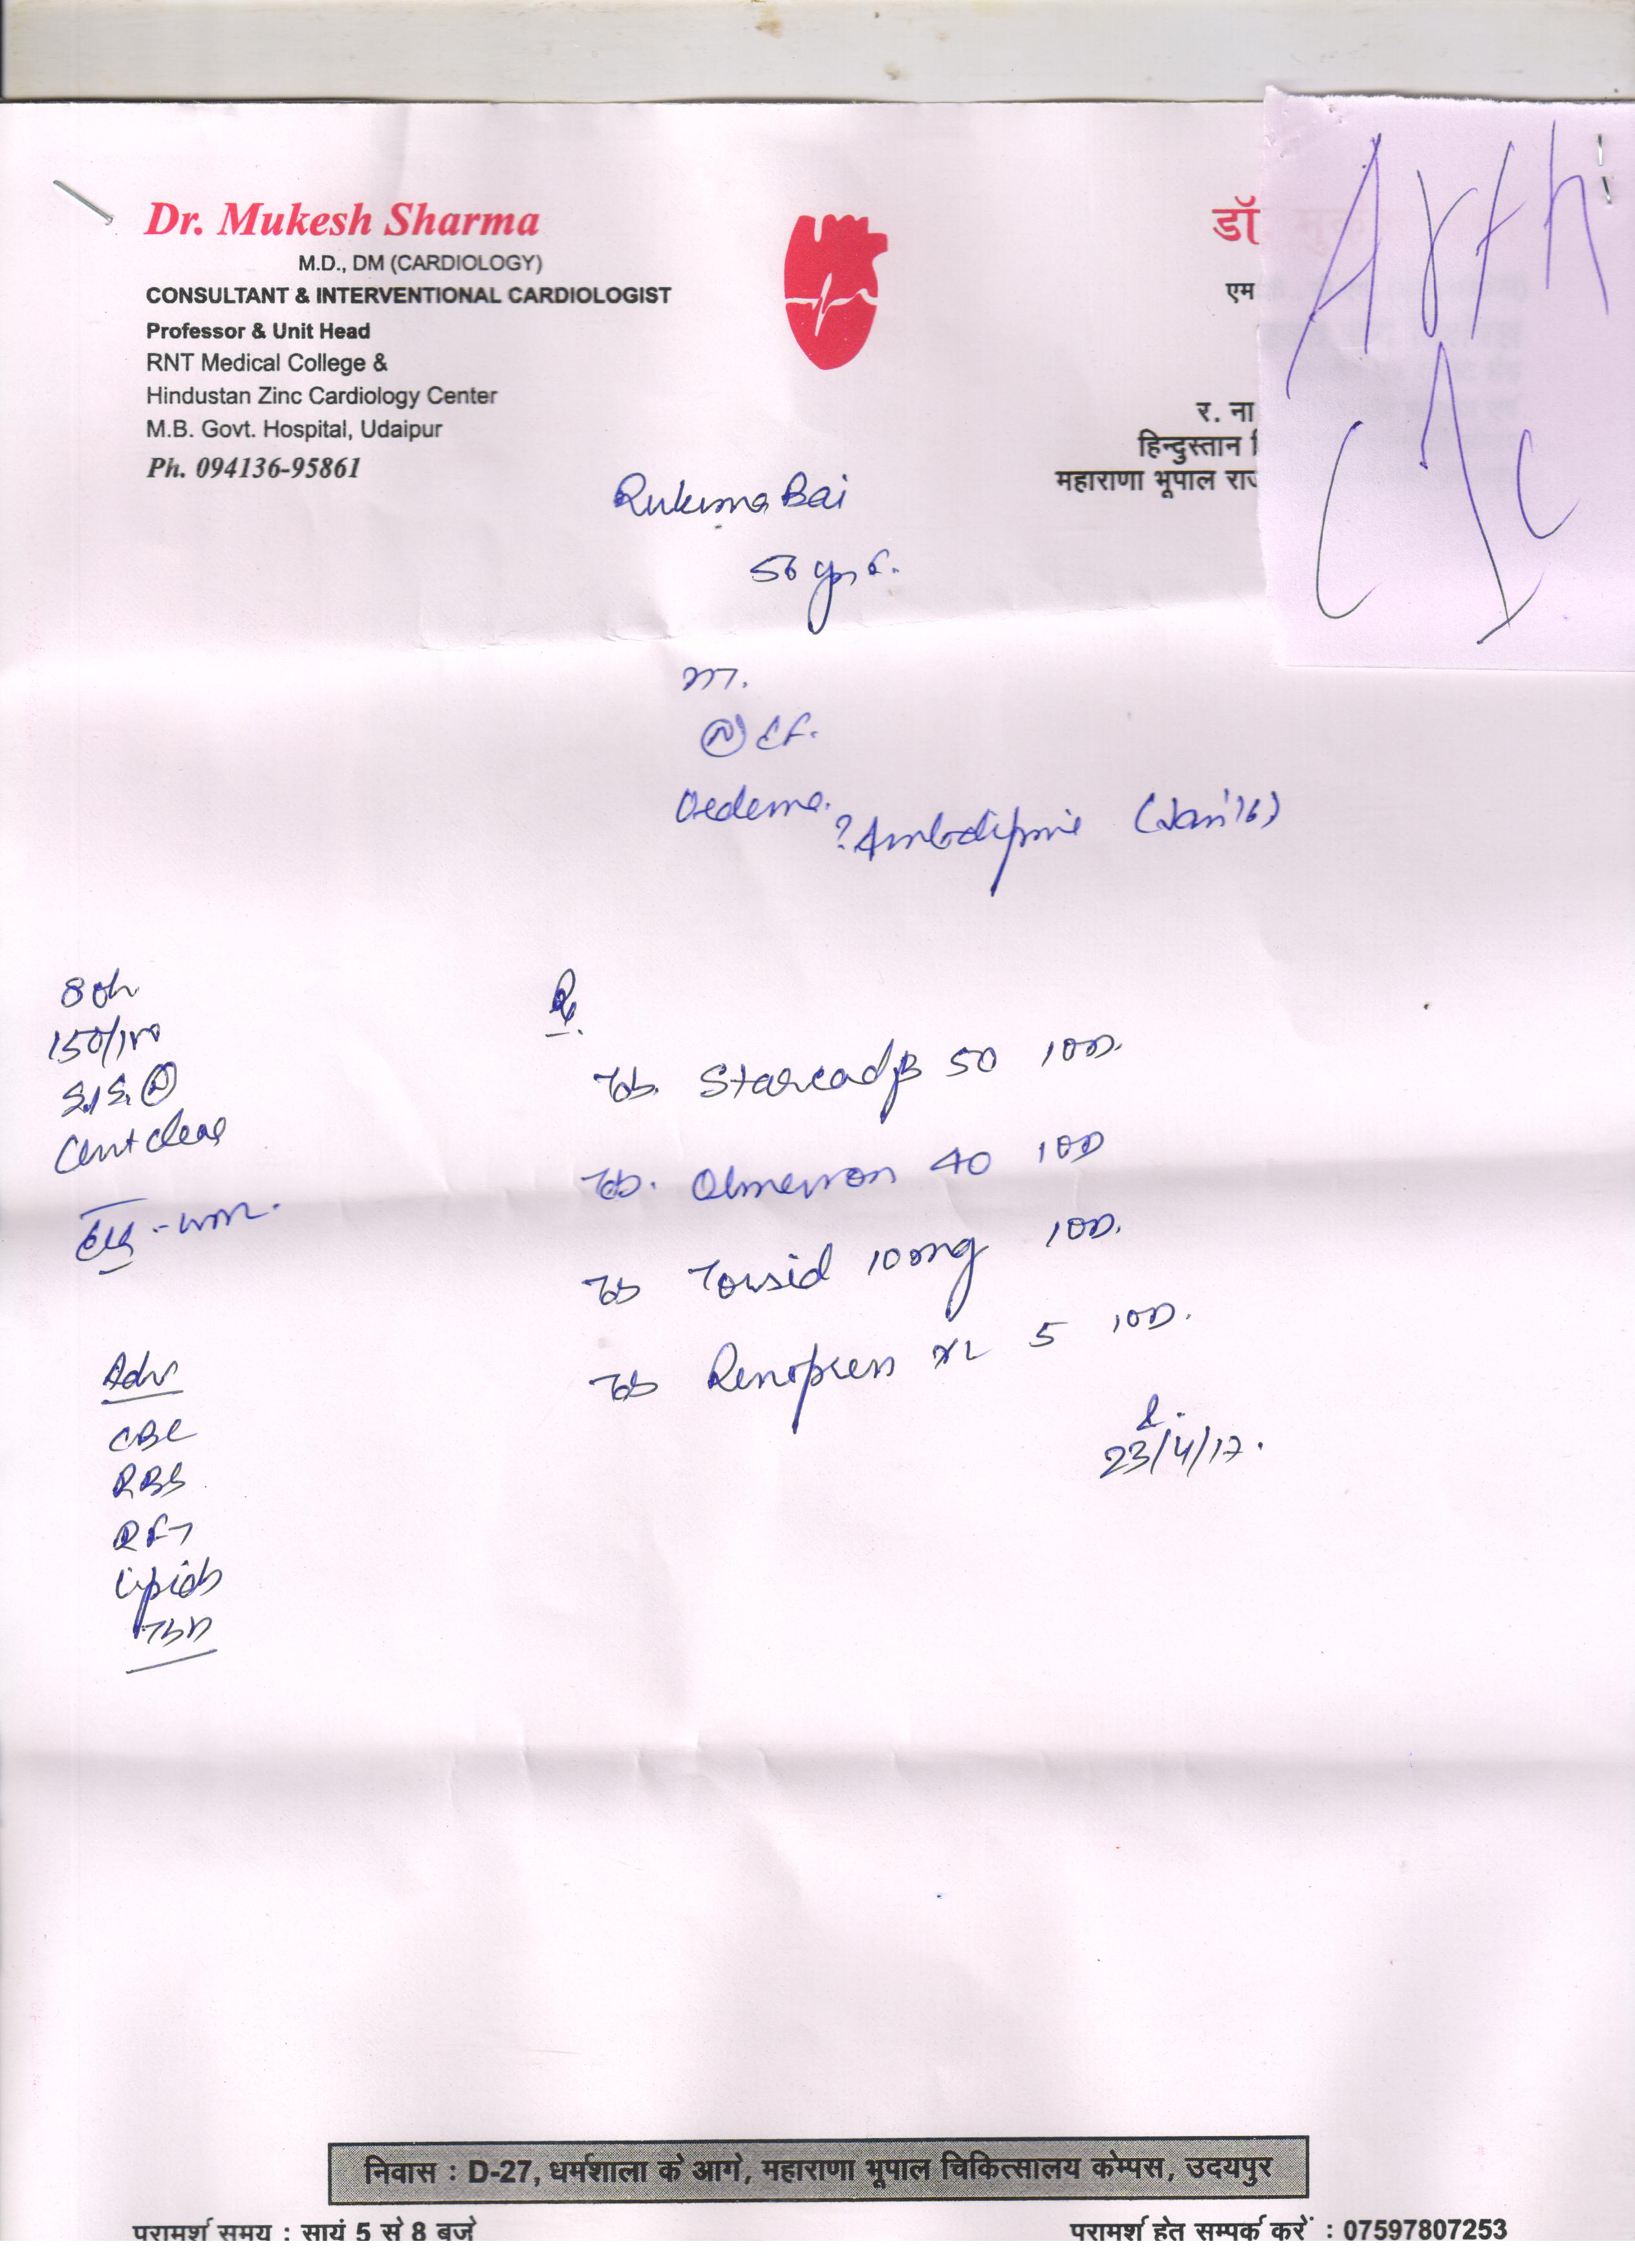 Dr. Mukesh Sharma
M.D., DM (CARDIOLOGY)
CONSULTANT & INTERVENTIONAL CARDIOLOGIST
Professor & Unit Head
RNT Medical College &
Hindustan Zinc Cardiology Center
M.B. Govt. Hospital, Udaipur
Ph. 094136-95861
डॉ
एम
र. ना
हिन्दुस्तान
महाराणा भूपाल
Arth
Rukuma Bai
56 yrs F.
(N) EF.
Oedema.
? Amlodipine (Jan'16)
S1S2 (N)
Chest clear
Rx
Tab. Starcad β 50 1 OD.
Tab. 40 1 OD
Tab 100mg 1 OD.
Tab XL 5 1 OD.
23/4/17.
Adv
CBC
RBS
RFT
Lipids
निवास : D-27, धर्मशाला के आगे, महाराणा भूपाल चिकित्सालय केम्पस, उदयपुर
परामर्श समय : सायं 5 से 8 बजे
परामर्श हेतु सम्पर्क करें : 07597807253